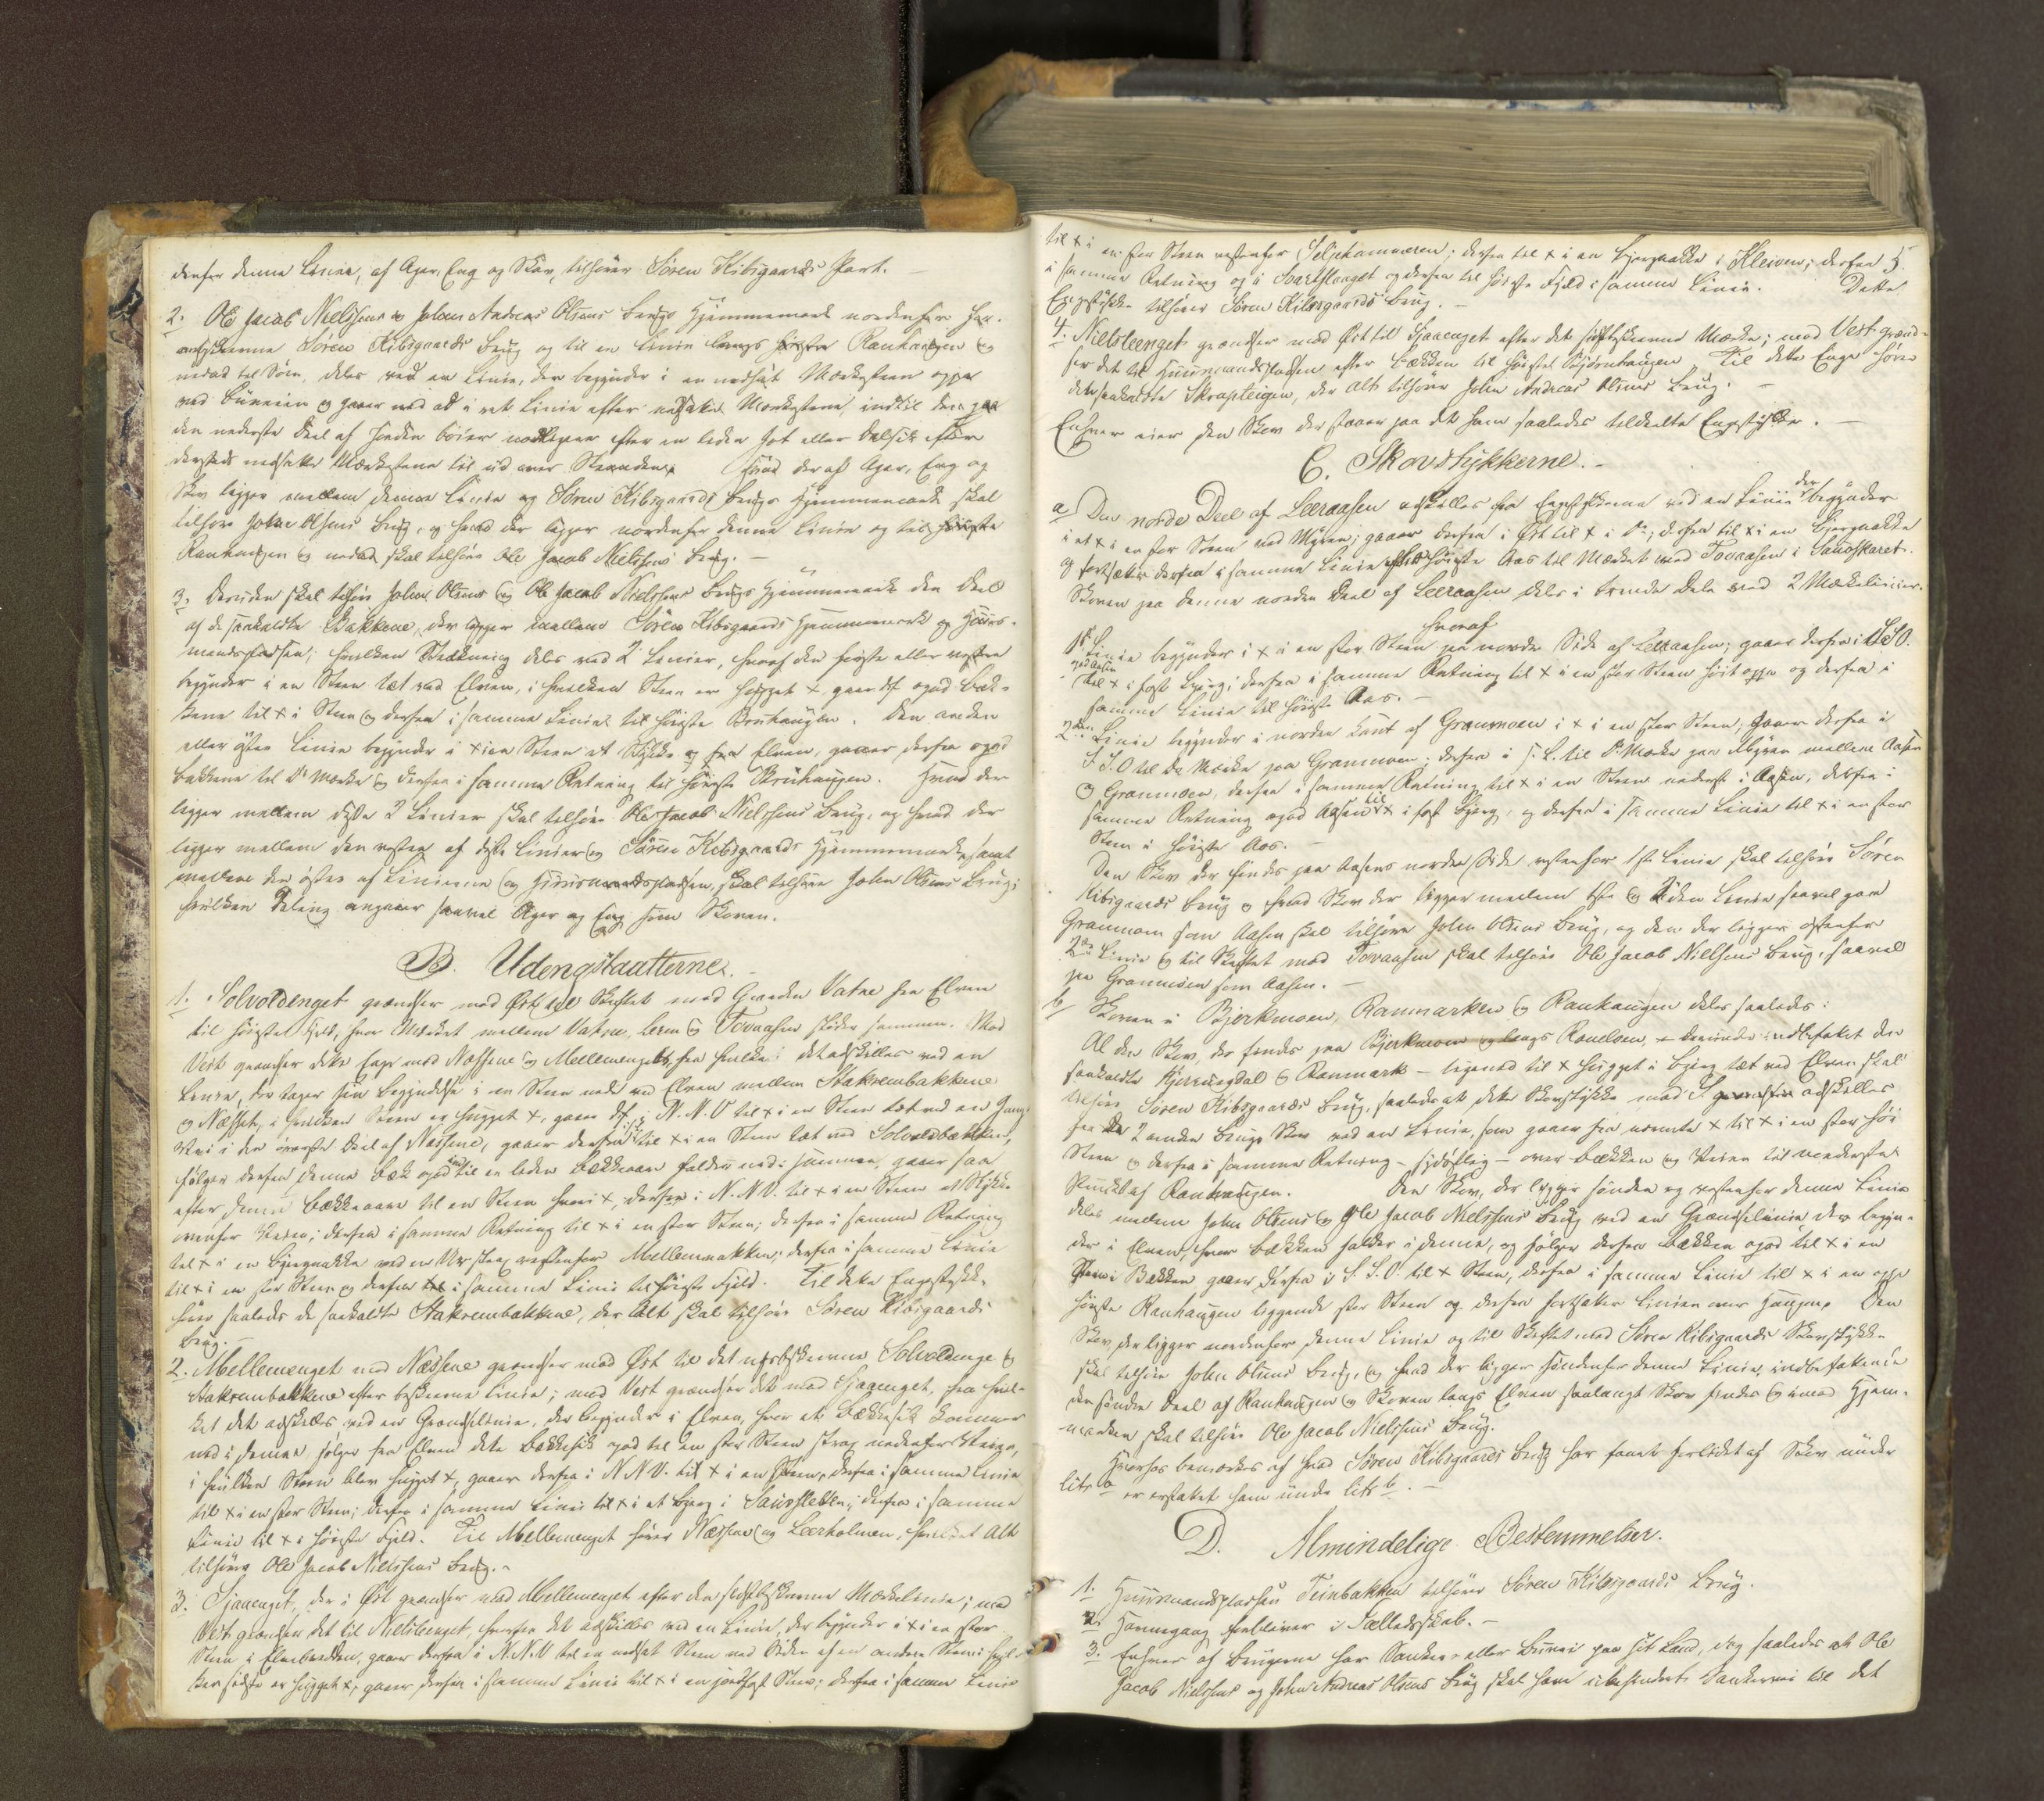 denfor denne Linie, af Ager, Eng og Skov, tilhører Søren Kibsgaards Part.
2. Ole Jacob Nielsens og Johan Andreas Olsens Brugs Hjemmemark nordenfor
Søren Kibsgaards Brug og til en Linie langs høieste Ranhaugen og
nedad til Søen, deles ved en Linie, der begynder i en nedsat Markesteen oppe
ved Bumeien og gaaer ned ad i ret Linie efter nedsatte Markestene, indtil den paa
den nederste Deel af efter en liden eller Dalsik efter
dersteds nedsatte Markestene til ud over Stranden. Hvad der af Ager, Eng og
Skov ligger mellem denne Linie og Søren Kibsgaards Brugs Hjemmemark skal
tilhøre John Olsens Brug, og hvad der ligger nordenfor denne Linie og til høieste
Ranhaugen og nedad skal tilhøre Ole Jacob Nielsens Brug. —
3. Desuden skal tilhøre John Olsens og Ole Jacob Nielsens Brugs Hjemmemark den Deel
af de saakaldte Bakkene, der ligger mellem Søren Kibsgaards Hjemmemark og Huus-
mandspladsen; hvilken Strækning deles ved 2 Linier, hvoraf den første eller vestre
begynder i en Steen tæt ved Elven, i hvilken Steen er hugget +, gaaer df opad Bak-
kene til + i Steen og derfra i samme Linie til høieste Bruhaugen. Den anden
eller østre Linie begynder i + i en Steen et Stykke op fra Elven, gaaer derfra opad
Bakkene til Do Mærke og derfra i samme Retning til høieste Bruhaugen. Hvad der
ligger mellem disse 2 Linier skal tilhøre Ole Jacob Nielsens Brug, og hvad der
ligger mellem den vestre af disse Linier og Søren Kibsgaards Hjemmemark, samt
mellem den østre af Linierne og Huusmandspladsen, skal tilhøre John Olsens Brug;
hvilken Deling angaaer saavel Ager og Eng som Skoven.
B. Udengstaatterne. —
1. Solvoldenget grændser mod Øst til Skiftet med Gaarden Vatne fra Elven
til høieste Fjeld, hvor Mærket mellem Vatne, Leren og Tovaasen støder sammen. Mod
Vest grændser dette Enge med Næssene og Mellemenget, fra hvilke det adskilles ved en
Linie, der tager sin Begyndelse i en Steen ned ved Elven mellem Stakrembakkene
og Næsset, i hvilken Steen er hugget +, gaaer df i N.N.V til + i en Steen tæt ved en Gang-
Vei i den øverste Deel af Næssene, gaaer derfra til + i en Steen tæt ved Solvoldbækken,
følger derfra denne Bæk opad til en liden Bækkeaar falder ned i samme, gaaer saa
efter denne Bækkeaare til en Steen hvori +, derfra i N.N.V. til + i en Steen et Stykke
ovenfor Veien; derfra i samme Retning til + i en stor Steen; derfra i samme Retning
til + i en Bjergnakke ved en vestenfor Mellemnakken; derfra i samme Linie
til + i en stor Steen og derfra i samme Linie til høieste Fjeld. Til dette Engestykke
hører saaledes de saakaldte Stakrembakkene, der Alt skal tilhøre Søren Kibsgaards
Brug. —
2. Mellemenget med Næssene grændser mod Øst til det nysbeskrevne Solvoldenge og
Stakrembakkene efter beskrevne Linie; mod Vest grændser det med Sjaaenget, fra hvil-
ket det adskilles ved en Grændselinie, der begynder i Elven, hvor et Bækkesik kommer
ned i denne, følger fra Elven dette Bækkesik opad til en stor Steen strax nedenfor Veien,
i hvilken Steen blev hugget +, gaaer derfra i N N V. til + i en Steen, derfra i samme Linie
til + i en stor Steen; derfra i samme Linie til + i et Bjerg i Saursletten; derfra i samme
Linie til + i høieste Fjeld. Til Mellemenget hører Næssene og Leerholmen, hvilket Alt
tilhører Ole Jacob Nielsens Brug. —
3. Sjaaenget, der i Øst grændser med Mellemenget efter den sidstbeskrevne Mærkelinie; mod
Vest grændser det til Nielsleenget, hvorfra det adskilles ved en Linie, der begynder i + i en stor
Steen i Elvebredden, gaaer derfra i N.N.V til en nedsat Steen ved Siden af en anden Steen i hvil-
ken sidste er hugget +; gaaer derfra i samme Linie til + i en jordfast Steen; derfra i samme Linie
til + i en stor Steen vestenfor Seljehammeren; derfra til + i en Bjergnakke i Kleiven; derfra
i samme Retning op i Svartflauget og derfra til høieste Fjeld i samme Linie. Dette
Engstykke tilhører Søren Kibsgaards Brug. —
4. Nielsleenget grændser mod Øst til Sjaaenget efter det sidstbeskrevne Mærke; mod Vest grænd-
ser det til Huusmandspladsen efter Bækken til høieste Bjørnhaugen. Til dette Enge hører
den saakaldte Skrapteigen, der Alt tilhører John Andreas Olsens Brug. —
Enhver eier den Skov der staaer paa det ham saaledes tildeelte Engstykke. —
C. Skovstykkerne. —
a Den nordre Deel af Leeraasen adskilles fra Engstykkerne ved en Linie der begynder
i et + i en stor Steen ved Myren; gaaer derfra i Øst til + i Do; derfra til + i en Bjergnakke
og fortsætter derfra i samme Linie efter høieste Aas til Mærket med Tovaasen i Sandskaret.
Skoven paa denne nordre Deel af Leeraasen deles i trende Dele ved 2 Mærkelinier.
hvoraf
1ste Linie begynder i + i en stor Steen paa nordre Side af Leeraasen; gaaer derfra i S.S.O.
opad Aasen
til + i fast Bjerg; derfra i samme Retning til + i en stor Steen høit oppe og derfra i
samme Linie til høieste Aas. —
2den Linie begynder i nordre Kant af Granmoen i + i en stor Steen; gaaer derfra i
S.S.O til Do Mærke paa Granmoen; derfra i s. L. til Do Mærke paa Myren mellem Aasen
og Granmoen, derfra i samme Retning til + i en Steen nederst i Aasen, derfra i
samme Retning opad Aasen til + i fast Bjerg, og derfra i samme Linie til + i en stor
Steen i høieste Aas. —
Den Skov der findes paa Aasens nordre Side vestenfor 1ste Linie skal tilhøre Søren
Kibsgaards Brug og hvad Skov der ligger mellem 1ste og 2den Linie saavel paa
Granmoen som Aasen skal tilhøre John Olsens Brug, og den der ligger østenfor
2den Linie og til Skiftet med Tovaasen skal tilhøre Ole Jacob Nielsens Brug, saavel
paa Granmoen som Aasen. —
b Skoven i Bjerkmoen, Ranmarken og Ranhaugen deles saaledes:
Al den Skov, der findes paa Bjerkmoen og langs Ranelven, — derunder indbefattet den
saakaldte Kjerringdal og Ranmark — ligened til + hugget i Bjerg tæt ved Elven skal
tilhøre Søren Kibsgaards Brug, saaledes at dette Skovstykke mod S adskilles
fra de 2 andre Brugs Skov ved en Linie, som gaaer fra nævnte + til + i en stor høi
Steen og derfra i samme Retning — sydostlig — over Bækken og Veien til nederste
Punkt af Ranhaugen. Den Skov, der ligger sønden og vestenfor denne Linie
deles mellem John Olsens og Ole Jacob Nielsens Brug ved en Grændselinie, der begyn-
der i Elven, hvor Bækken falder i denne, og følger derfra Bækken opad til + i en
Steen i Bækken gaaer derfra i S.S.O. til + Steen, derfra i samme Linie til + i en oppe
høieste Ranhaugen liggende stor Steen og derfra fortsætter Linien over Haugen. Den
Skov, der ligger nordenfor denne Linie og til Skiftet med Søren Kibsgaards Skovstykke
skal tilhøre John Olsens Brug, og hvad der ligger søndenfor denne Linie, indbefattende
den søndre Deel af Ranhaugen og Skoven langs Elven saalangt Skov findes og imod Hjem-
marken skal tilhøre Ole Jacob Nielsens Brug.
Hvorhos bemærkes at hvad Søren Kibsgaards Brug har faaet forlidet af Skov under
litr a er erstattet ham under litr b. —
D. Almindelige Bestemmelser.
1. Huusmandspladsen Teinbakken tilhører Søren Kibsgaards Brug.
2. Havnegang forbliver i Fælledsskab. —
3. Enhver af Brugerne har Vanker- eller Bumei paa sit Land, dog saaledes at Ole
Jacob Nielsens og John Andreas Olsens Brug skal have ubehindret til det